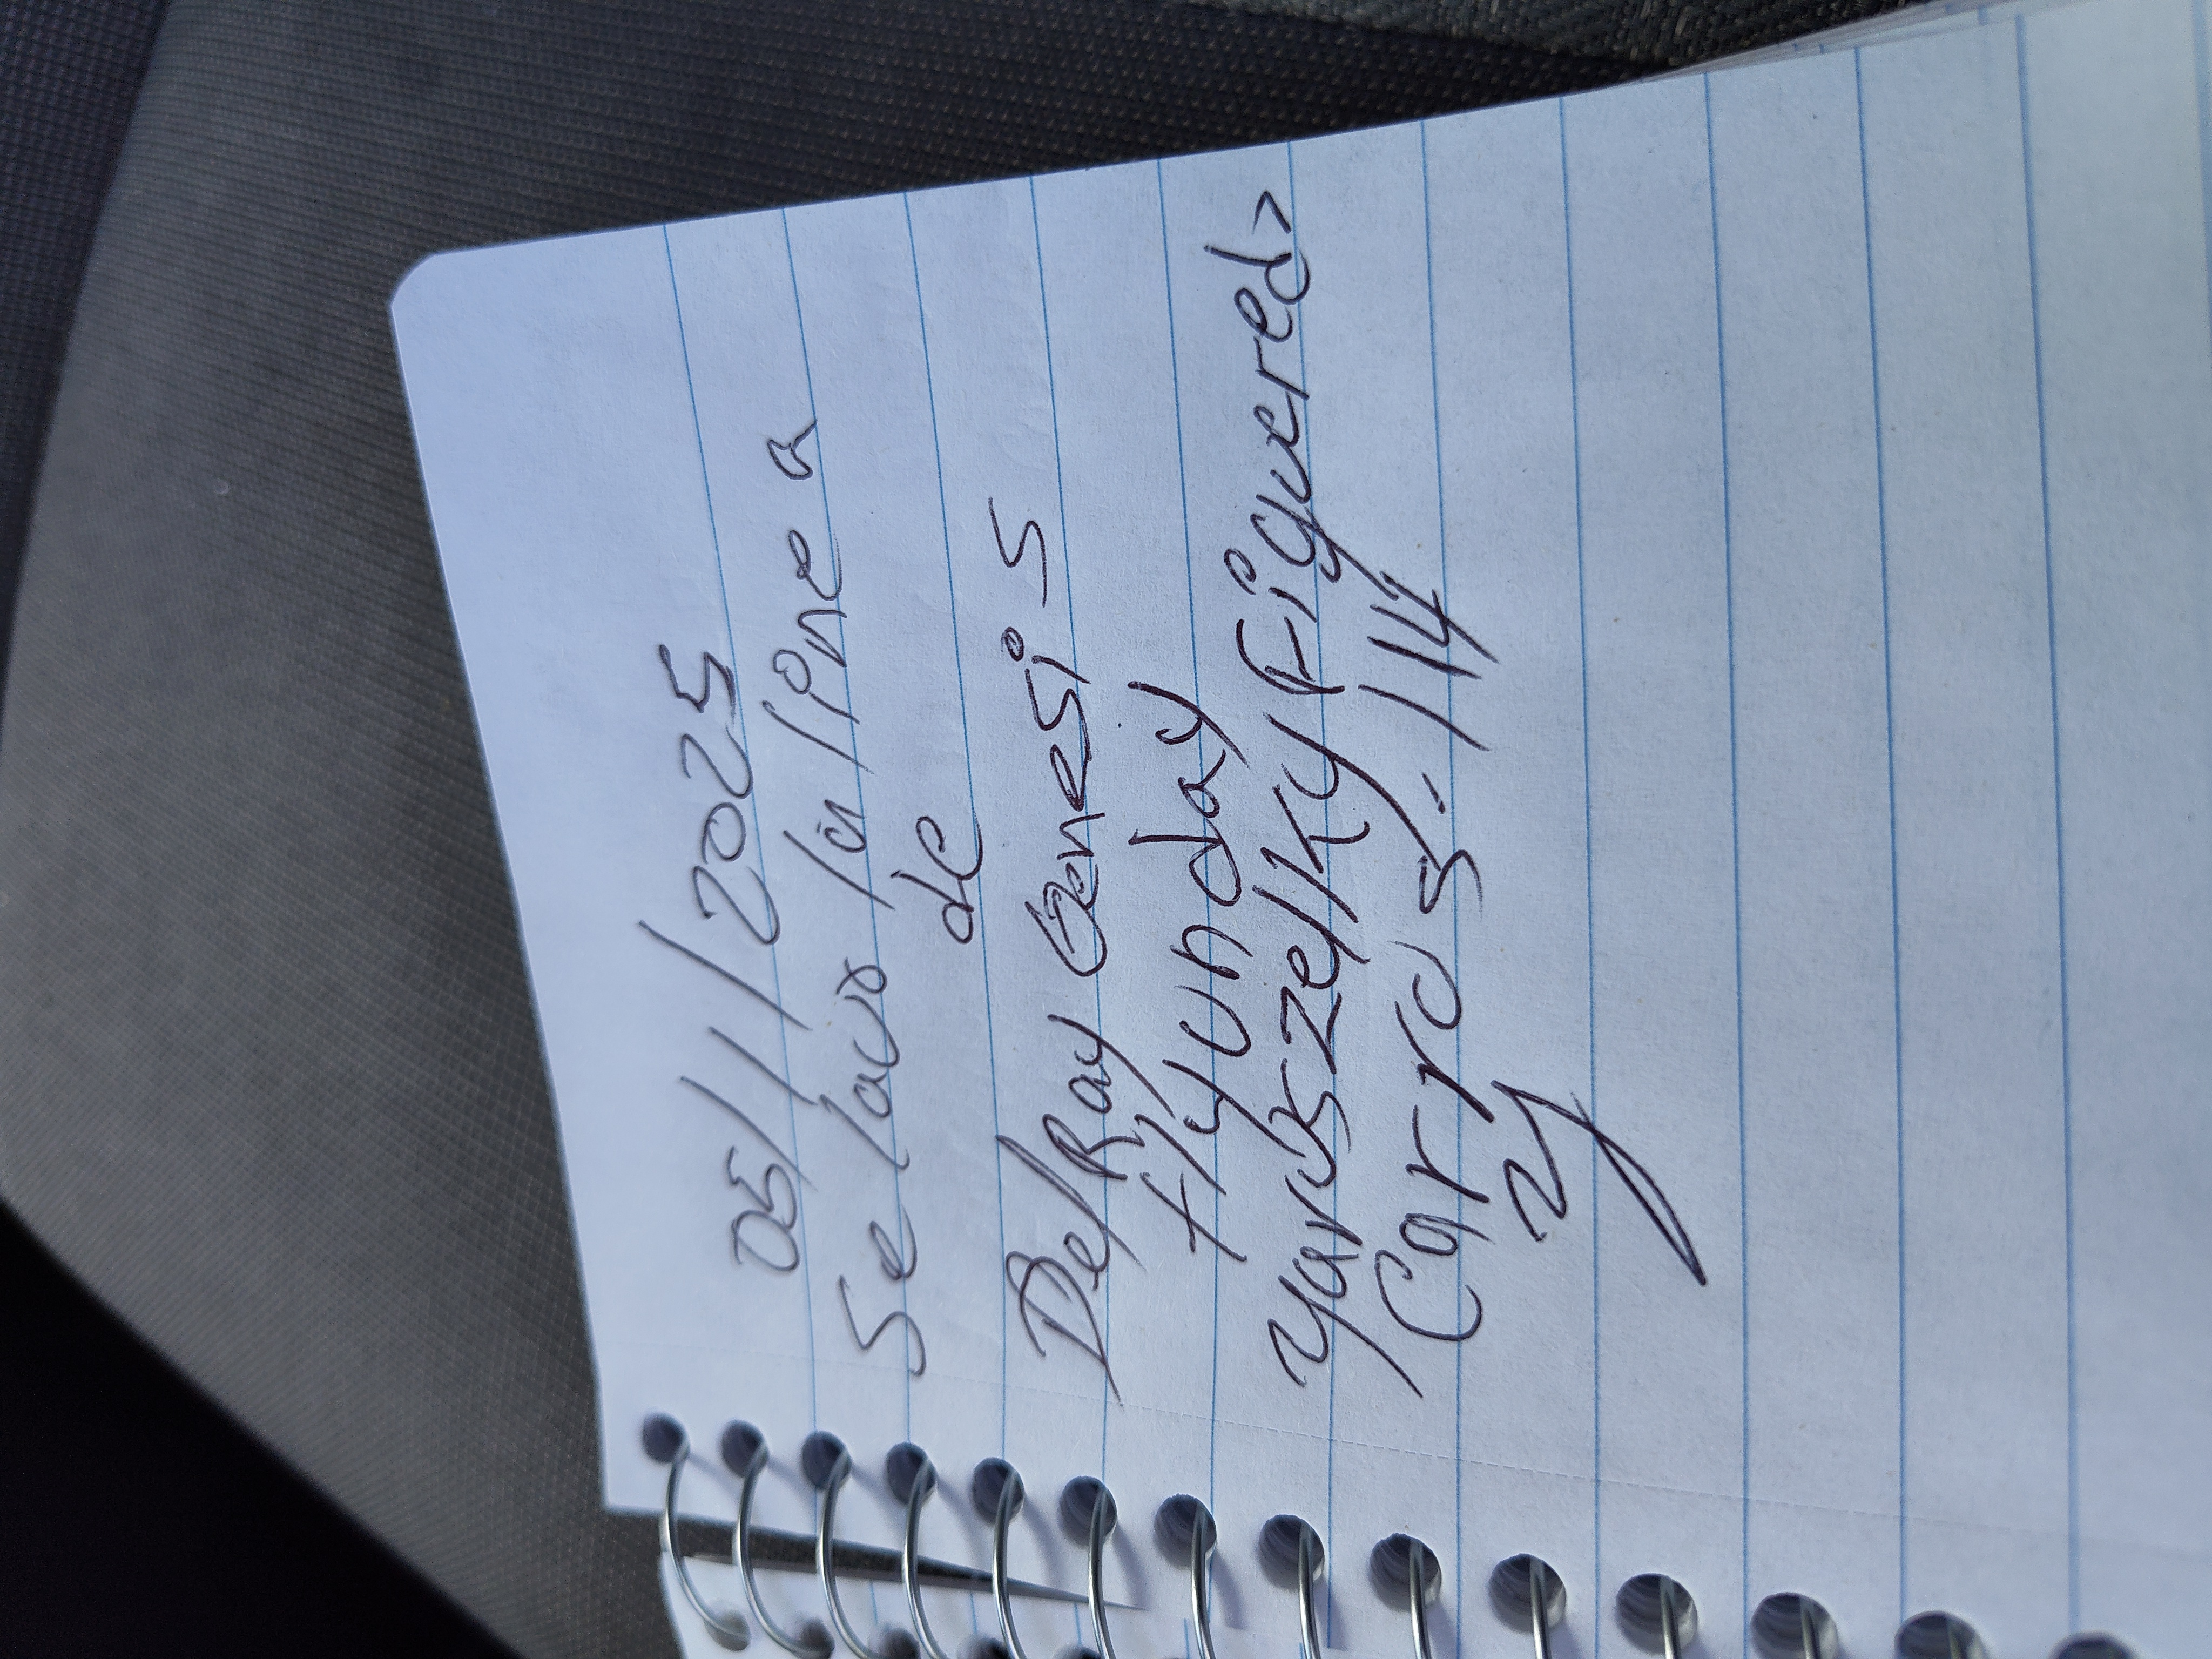 05/1/2025
Se lavo la linea
de
DelRay Genesis
Hyunday
Yaroszelky Figueredo
Carros. 114